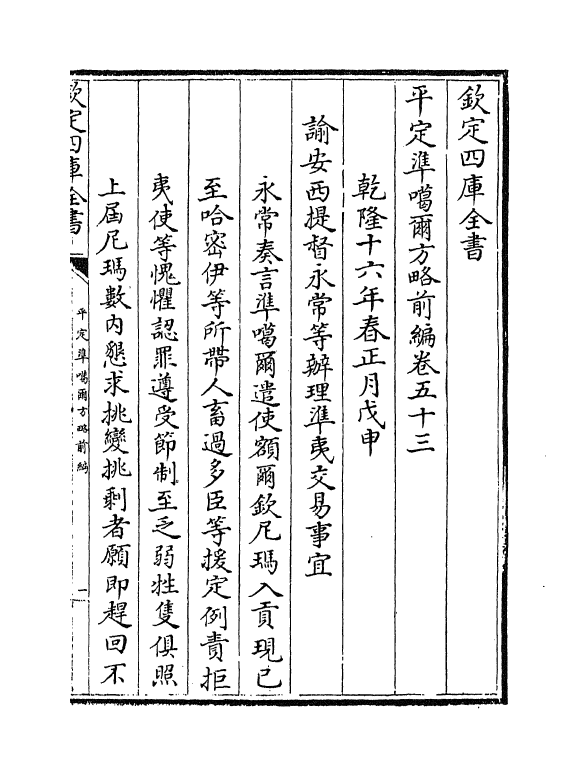 欽定四庫全書
平定準噶爾方略前編卷五十三
乾隆十六年春正月戊申
諭安西提督永常等辦理準夷交易事宜
永常奏言準噶爾遣使額爾欽尼瑪入貢現已
至哈密伊等所帶人畜過多臣等援定例責拒
夷使等愧懼認罪遵受節制至乏弱牲隻俱照
上屆尼瑪數內懇求挑變挑剩者願即趕回不
欽定四庫全書
平定準噶爾方略前編
一